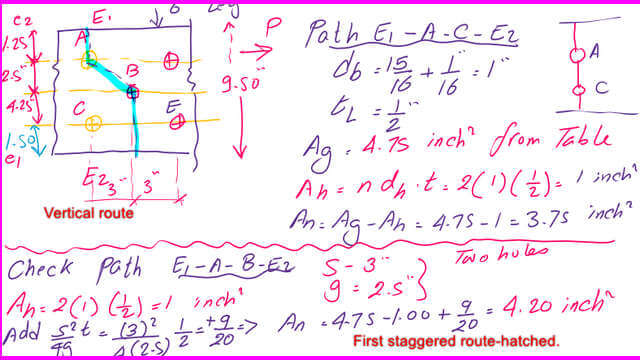 c2 E1 6 Leg
1.25" A P
2.5" B 9.50"
4.25" C E
1.50"
e1 E2 3" 3"
Vertical route
Path E1-A-C-E2
db = 15/16 + 1/16" = 1"
tL = 1/2"
A
C
Ag = 4.75 inch² from Table
Ah = n dh · t = 2(1)(1/2) = 1 inch²
An = Ag - Ah = 4.75 - 1 = 3.75 inch²
Two holes
Check Path E1-A-B-E2
S - 3"
g = 2.5"
Ah = 2(1)(1/2) = 1 inch²
Add S²t/4g = (3)²/4(2.5) 1/2 = +9/20 => An = 4.75 - 1.00 + 9/20 = 4.20 inch²
First staggered route-hatched.